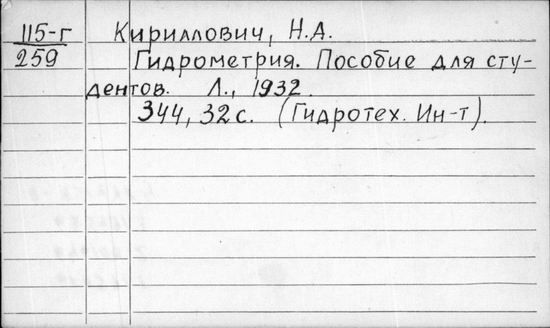 115-г Кириллович, Н.А.
259 Гидрометрия. Пособие для сту-
дентов. Л., 1932.
344, 32 с. (Гидротех. Ин-т).